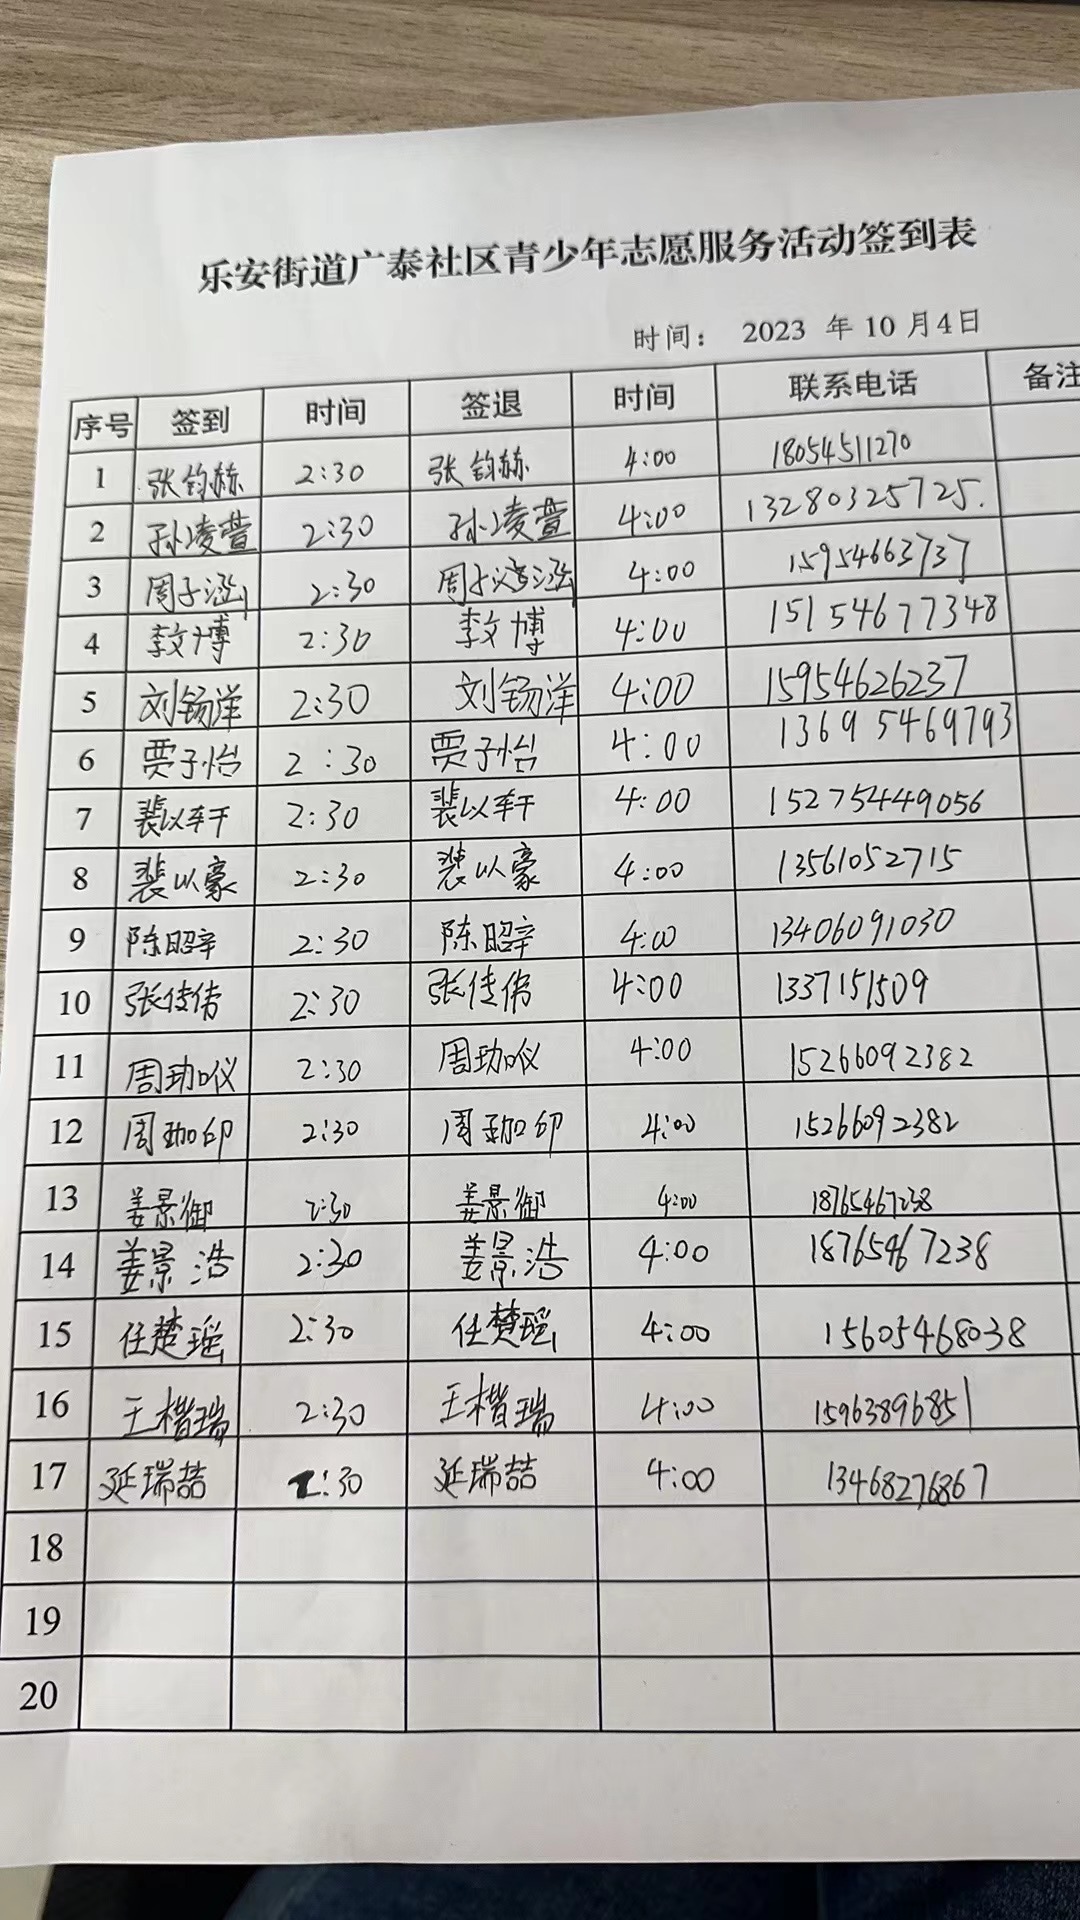 乐安街道广泰社区青少年志愿服务活动签到表
时间： 2023 年 10 月4日
序号 签到 时间 签退 时间 联系电话 备注
1 张钧赫 2:30 张钧赫 4:00 18054511270
2 孙凌萱 2:30 孙凌萱 4:00 13280325725.
3 周子涵 2:30 周子涵 4:00 15954663737
4 李文博 2:30 李文博 4:00 15154677348
5 刘锡洋 2:30 刘锡洋 4:00 15954626237
6 贾子怡 2:30 贾子怡 4:00 13695469793
7 裴以轩 2:30 裴以轩 4:00 15275449056
8 裴以豪 2:30 裴以豪 4:00 13561052715
9 陈昭宇 2:30 陈昭宇 4:00 13406091030
10 张传伟 2:30 张传伟 4:00 1337151509
11 2:30 4:00 15266092382
12 2:30 4:00 15266092382
13 姜景御 2:30 姜景御 4:00 18765467238
14 姜景浩 2:30 姜景浩 4:00 18765467238
15 任楚瑶 2:30 任楚瑶 4:00 15605468038
16 王楷瑞 2:30 王楷瑞 4:00 15963896851
17 延瑞喆 2:30 延瑞喆 4:00 13468276867
18
19
20